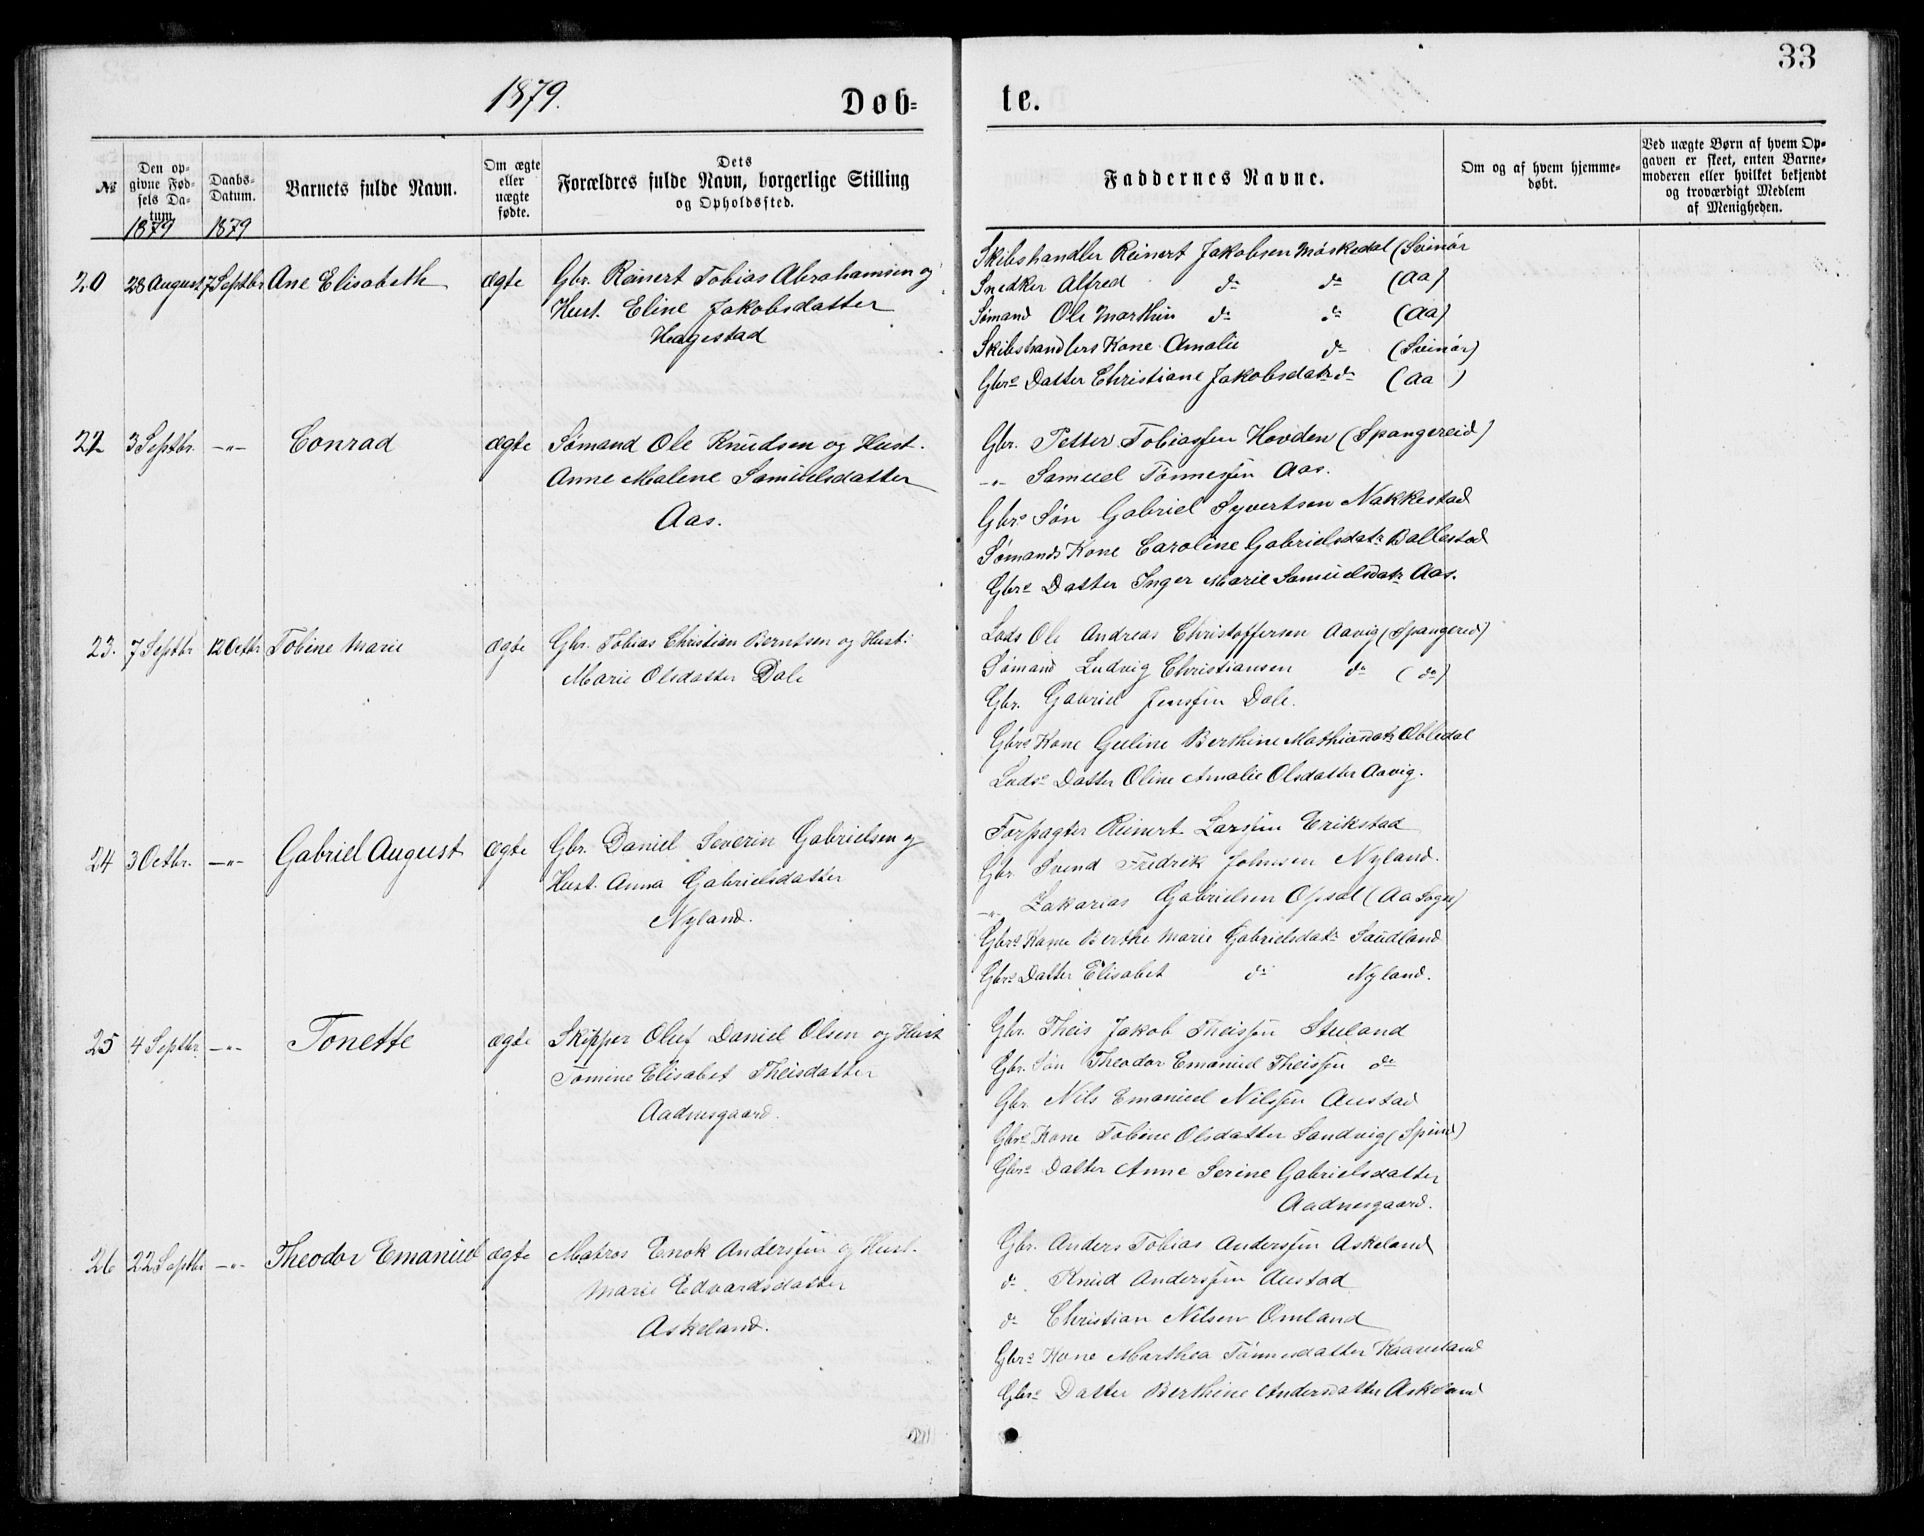 33
1879.
Døb-
te.
№
Den op-
givne Fød-
sels Da-
tum.
1879
Daabs-
Datum.
1879
Barnets fulde Navn.
Om ægte
eller
uægte
fødte.
Dets
Forældres fulde Navn, borgerlige Stilling
og Opholdssted.
Faddernes Navne.
Om og af hvem hjemme-
døbt.
Ved uægte Børn af hvem Op-
gaven er skeet, enten Barne-
moderen eller hvilket bekjendt
og troværdigt Medlem
af Menigheden.
20 28 August 7 Septbr Ane Elisabeth ægte Gbr. Reinert Tobias Abrahamsen og
Hust. Eline Jakobsdatter
Hagestad
Skibshandler Reinert Jakobsen Møskedal (Svinør
Snedker Alfred do do (Aa)
Sømand Ole Marthin do do (Aa)
Skibshandlers Kone Amalie do (Svinør)
Gbrs Datter Christiane Jakobsdatr do (Aa)
22 3 Septbr. -"- Conrad ægte Sømand Ole Knudsen og Hust.
Anne Malene Samuelsdatter
Aas.
Gbr. Petter Tobiassen Hovden (Spangereid)
-"- Samuel Tønnessen Aas.
Gbrs Søn Gabriel Syvertsen Nakkestad
Sømands Kone Caroline Gabrielsdatr Ballestad
Gbrs Datter Inger Marie Samuelsdatr Aas.
23. 7 Septbr 12 Octbr Tobine Marie ægte Gbr. Tobias Christian Berntsen og Hust:
Marie Olsdatter Dale
Lods Ole Andreas Christoffersen Aavig (Spangereid)
Sømand Ludvig Christiansen do (do)
Gbr. Gabriel Jenssen Dale.
Gbrs Kone Geline Berthine Mathiasdatr Øbledal
Lods Datter Oline Amalie Olsdatter Aavig.
24 3 Octbr. -"- Gabriel August ægte Gbr. Daniel Severin Gabrielsen og
Hust. Anna Gabrielsdatter
Nyland.
Forpagter Reinert Larssen Erikstad
Gbr. Svend Fredrik Johnsen Nyland.
-"- Zakarias Gabrielsen Opsal (Aa Sogn)
Gbrs Kone Berthe Marie Gabrielsdatr Saudland
Gbrs Datter Elisabet do Nyland.
25 4 Septbr -"- Tonette ægte Skipper Oluf Daniel Olsen og Hust
Tomine Elisabet Theisdatter
Aadnesgaard.
Gbr. Theis Jakob Theissen Stuland
Gbr. Søn Theodor Emanuel Theissen do
Gbr. Nils Emanuel Nilssen Austad
Gbrs Kone Tobine Olsdatter Sandvig (Spind)
Gbrs Datter Anne Serine Gabrielsdatter
Aadnesgaard.
26 22 Septbr -"- Theodor Emanuel ægte Matros Enok Anderssen og Hust.
Marie Edvardsdatter
Askeland.
Gbr. Anders Tobias Anderssen Askeland
do. Knud Anderssen Austad
do Christian Nilsen Omland
Gbrs Kone Marthea Tønnesdatter Kaaneland
Gbrs Datter Berthine Andersdatter Askeland